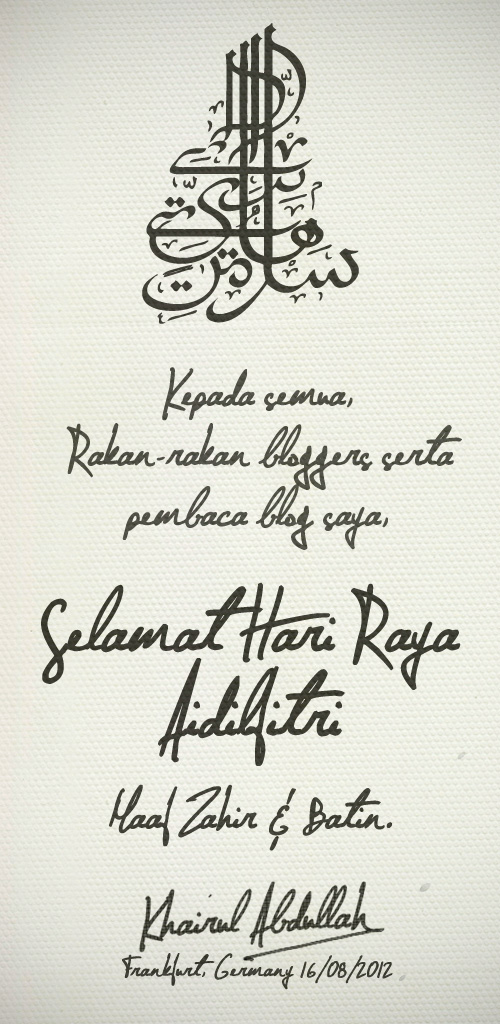 Kepada semua,
Rakan-rakan bloggers serta
pembaca blog saya,
Selamat Hari Raya
Aidilfitri
Maaf Zahir & Batin.
Khairul Abdullah
Frankfurt, Germany 16/08/2012